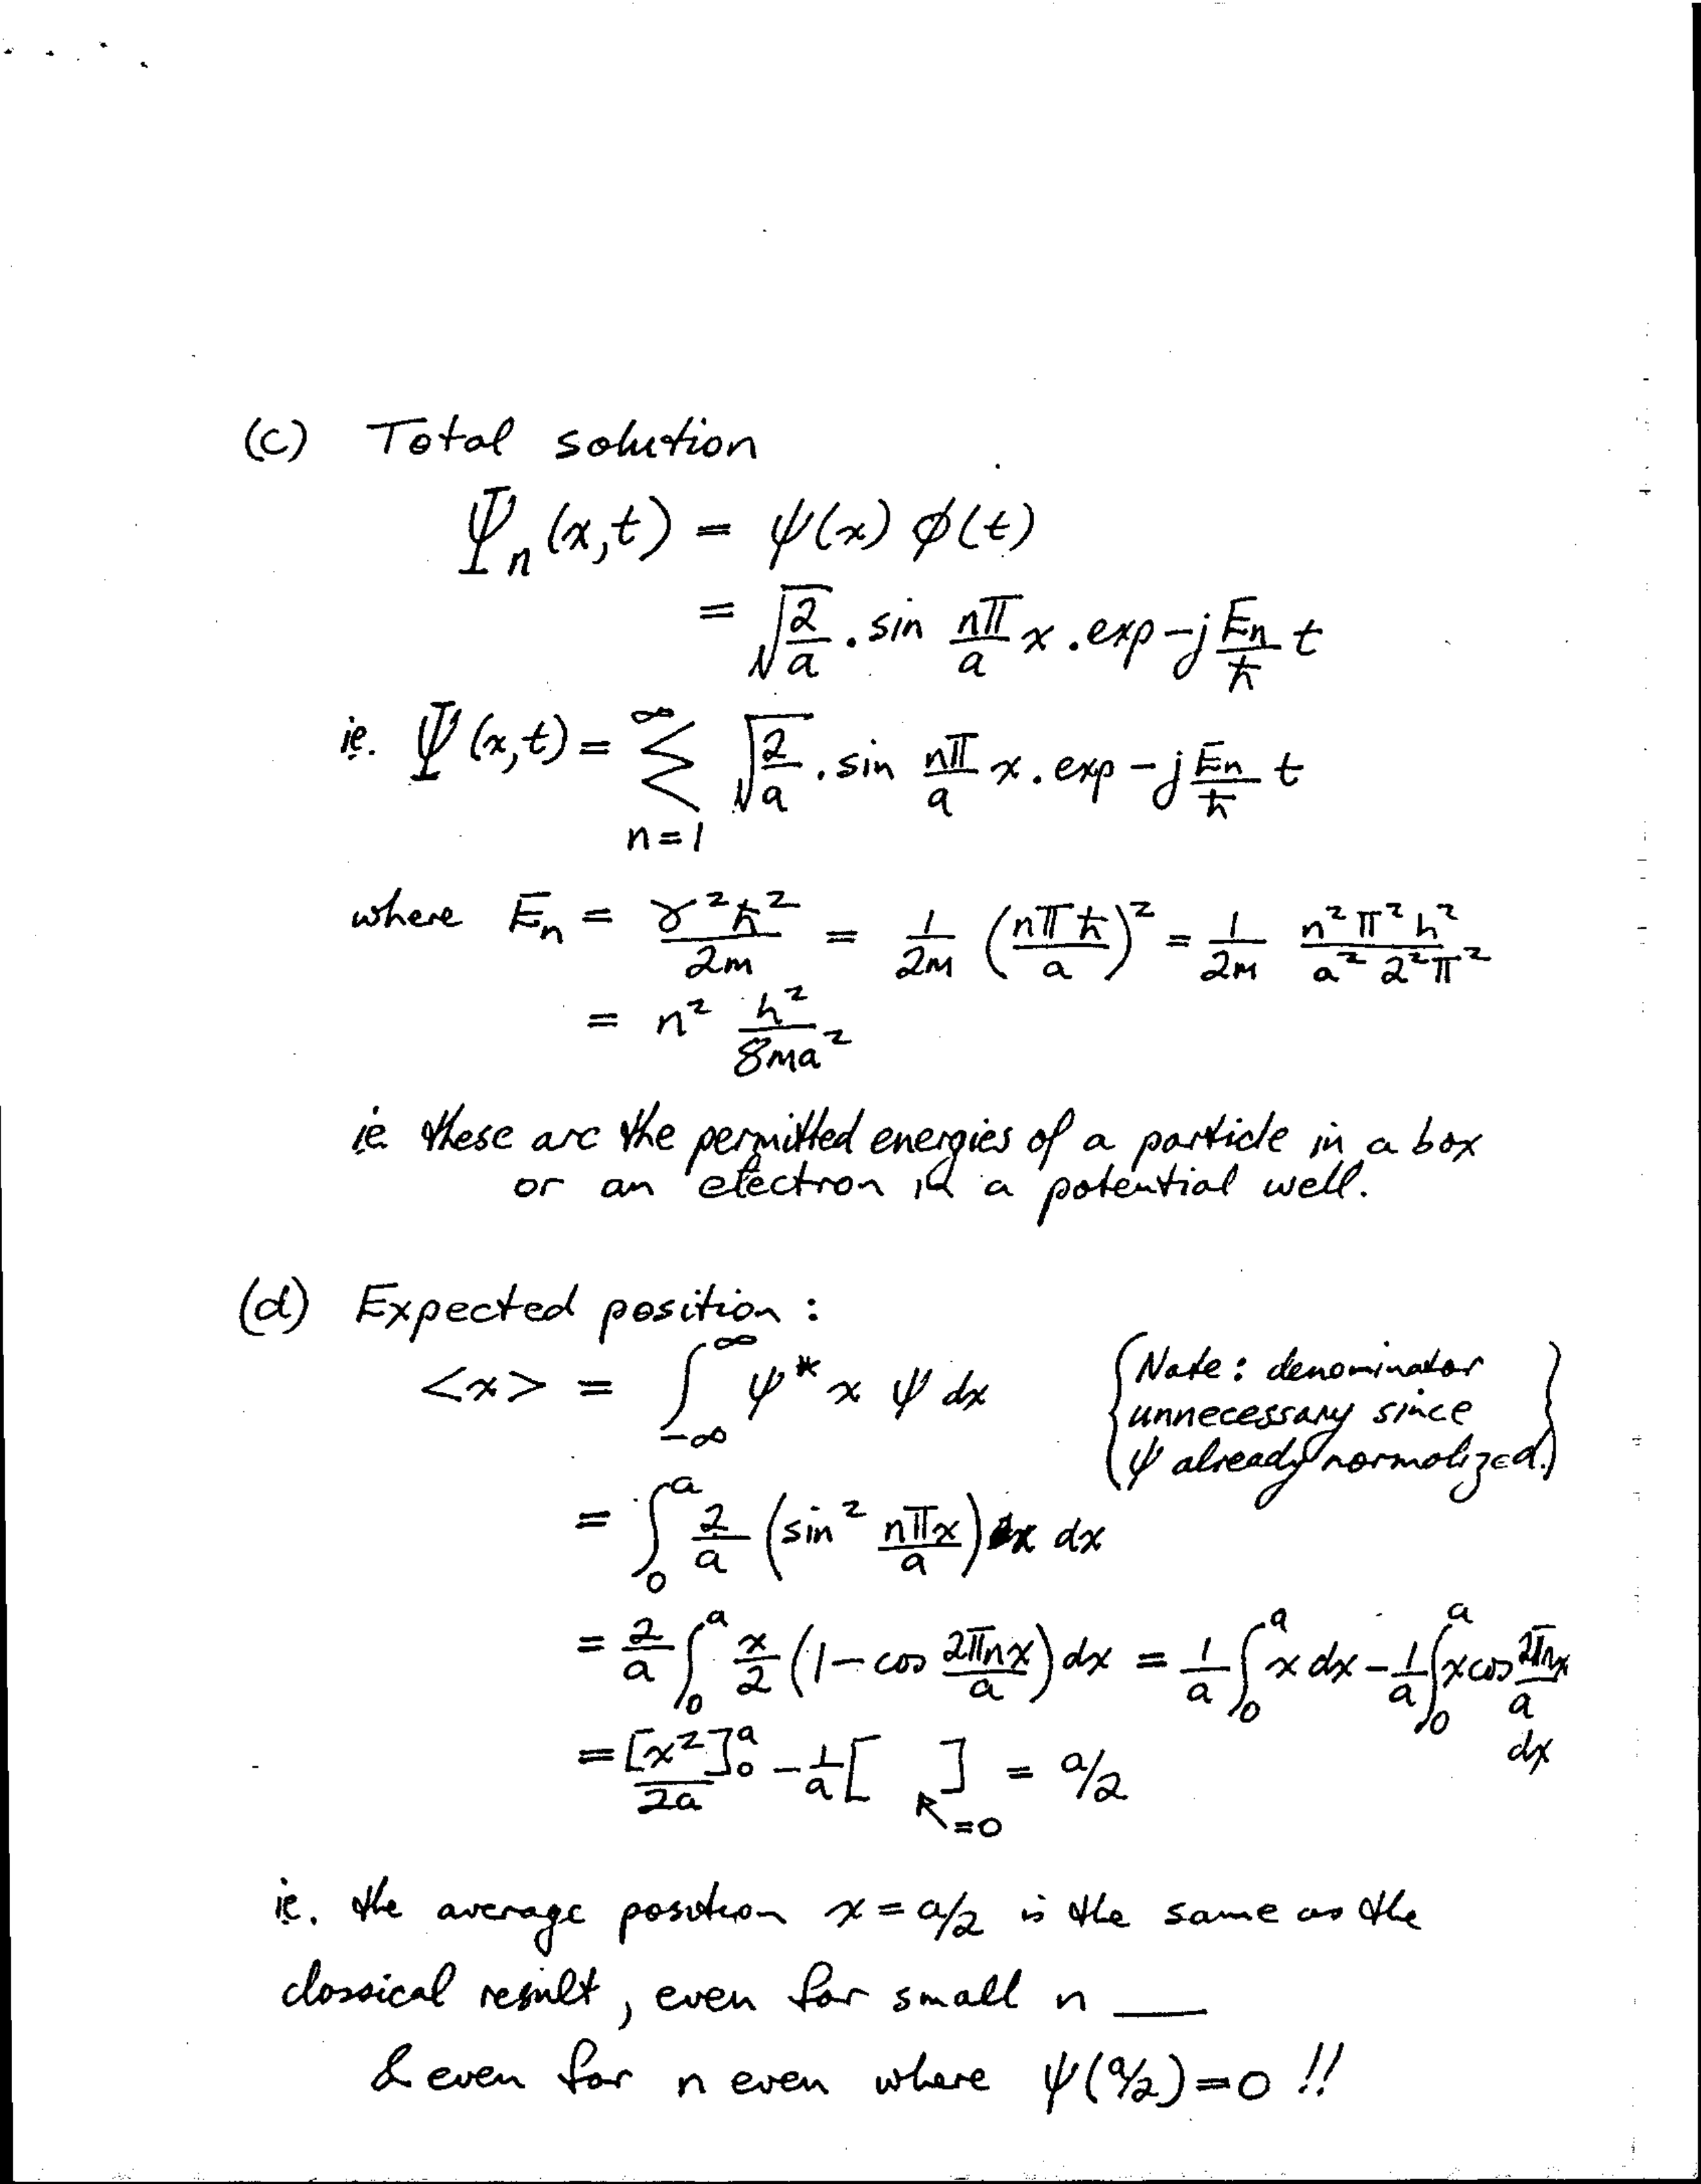 (c) Total solution
Ψn(x,t) = ψ(x) φ(t)
= √(2/a) . sin nπ/a x . exp -j En/ħ t
ie. Ψ(x,t) = ∑_{n=1}^{∞} √(2/a) . sin nπ/a x . exp -j En/ħ t
where En = γ²ħ²/2m = 1/2m (nπħ/a)² = 1/2m n²π²h²/a²2²π²
= n² h²/8ma²
ie these are the permitted energies of a particle in a box
or an electron in a potential well.
(d) Expected position :
<x> = ∫_{-∞}^{∞} ψ* x ψ dx {Note: denominator
unnecessary since
ψ already normalized.}
= ∫_0^a 2/a (sin² nπx/a) x dx
= 2/a ∫_0^a x/2 (1 - cos 2πnx/a) dx = 1/a ∫_0^a x dx - 1/a ∫_0^a x cos 2πnx/a dx
= [x²]_0^a/2a - 1/a [ ] = a/2
↖=0
ie. the average position x = a/2 is the same as the
classical result, even for small n ___
& even for n even where ψ(a/2) = 0 !!